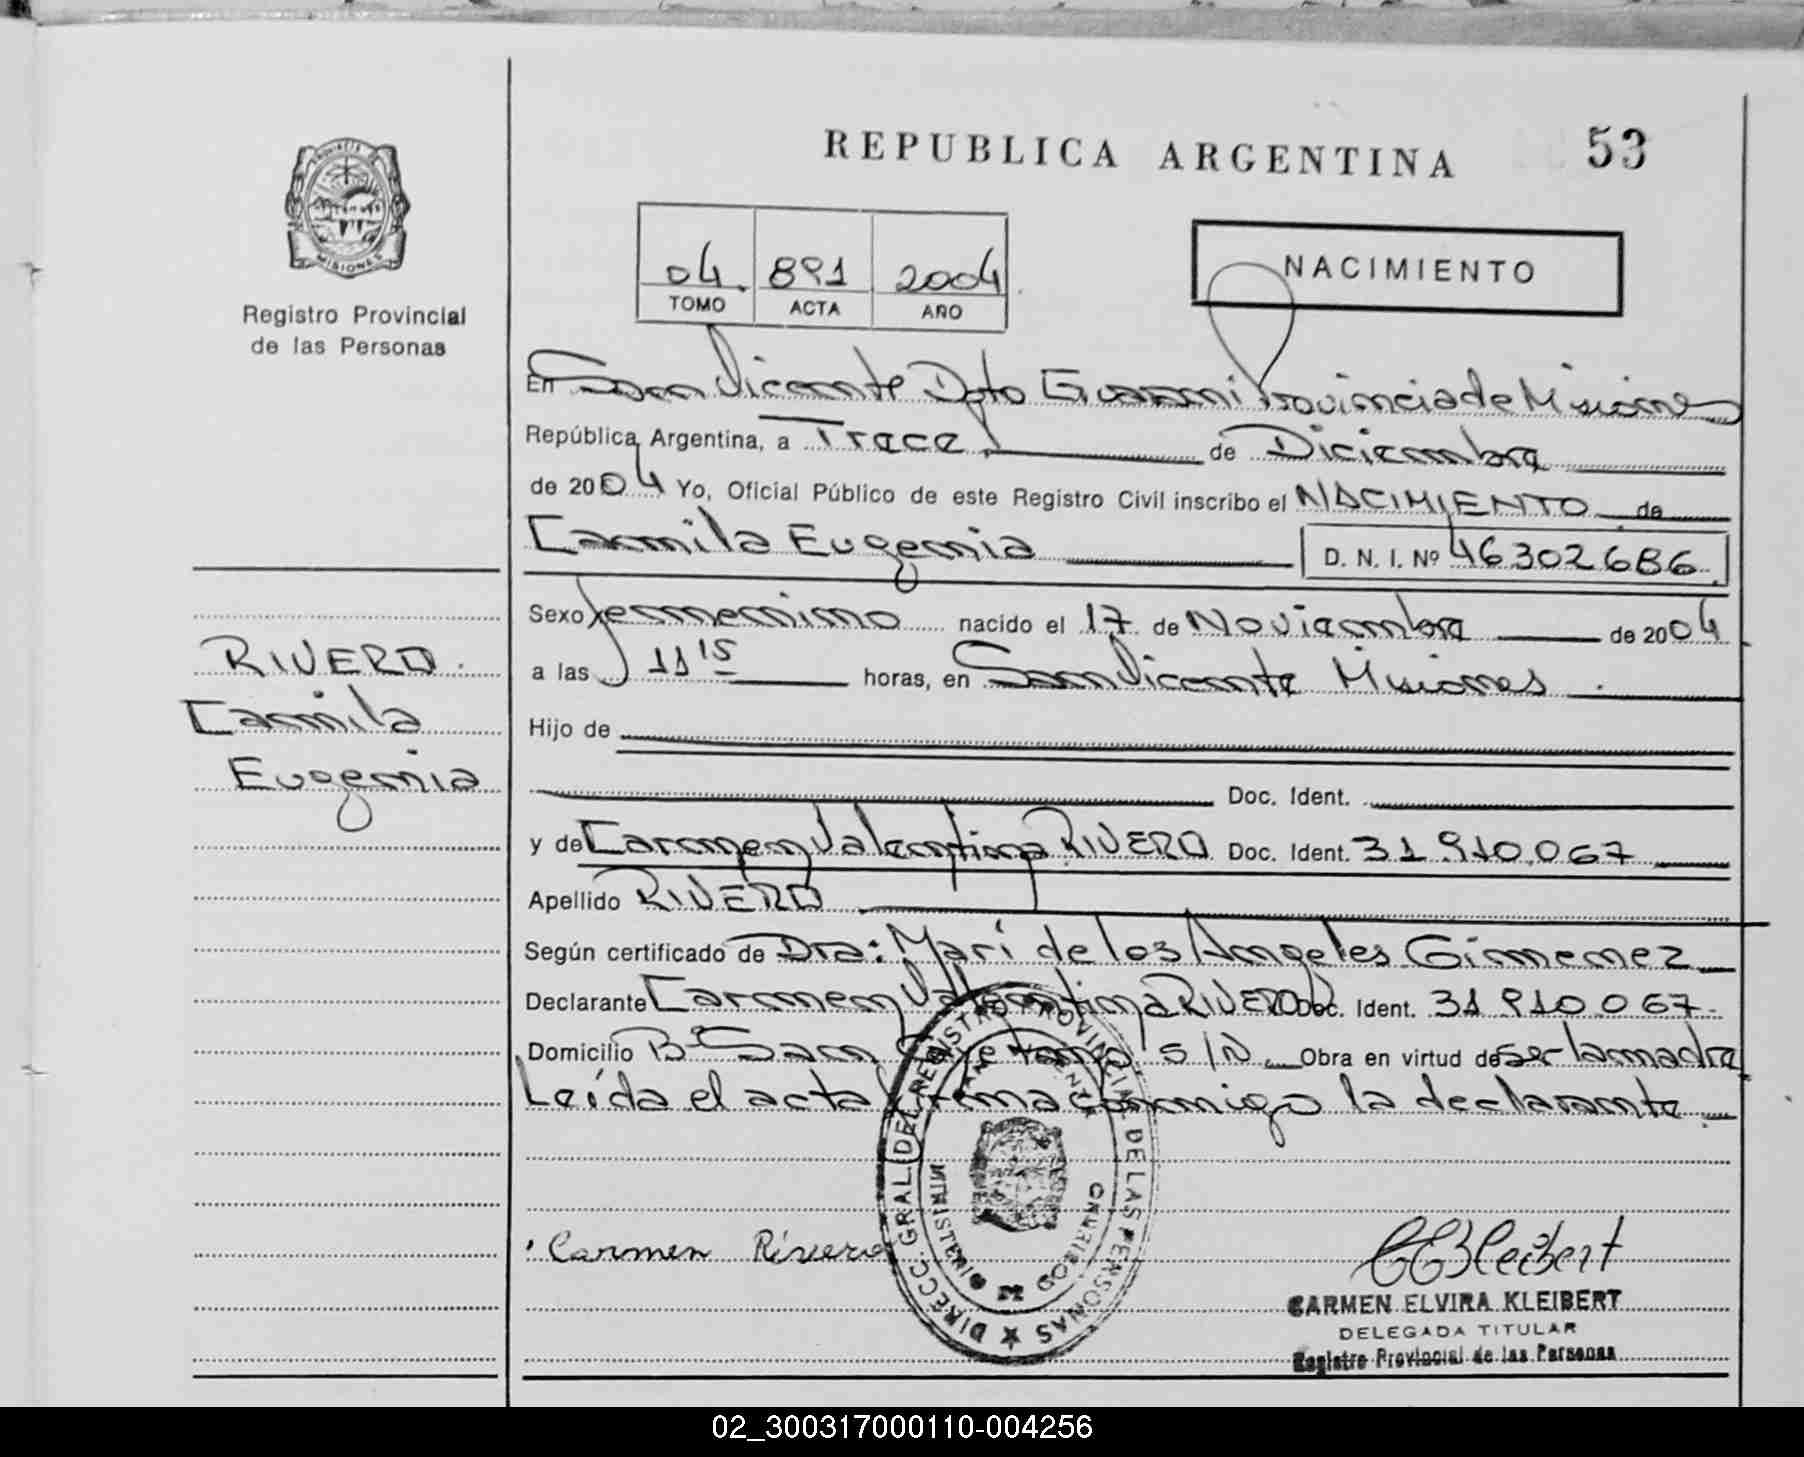 REPUBLICA ARGENTINA
53
PROVINCIA DE
MISIONES
Registro Provincial
de las Personas
04. 891 2004
TOMO ACTA AÑO
NACIMIENTO
En San Vicente Dpto Guarani Provincia de Misiones
República Argentina, a Trece de Diciembre
de 2004 Yo, Oficial Público de este Registro Civil inscribo el NACIMIENTO de
Camila Eugenia D. N. I. Nº 46302686.
Sexo femenino nacido el 17 de Noviembre de 2004
a las 11 15 horas, en San Vicente Misiones
Hijo de
Doc. Ident.
y de Carmen Valentina RIVERO Doc. Ident. 31.910.067
Apellido RIVERO
Según certificado de Dra: Mari de los Angeles Gimenez
Declarante Carmen Valentina RIVERO Doc. Ident. 31 910 067.
Domicilio Bº San Cayetano S/N. Obra en virtud de ser la madre
Leída el acta firma conmigo la declarante.
RIVERO.
Camila
Eugenia
DIRECC. GRAL. DEL REGISTRO PROVINCIAL DE LAS PERSONAS
SAN VICENTE
MINISTERIO GOBIERNO
Carmen Rivero
CEKleibert
CARMEN ELVIRA KLEIBERT
DELEGADA TITULAR
Registro Provincial de las Personas
02_300317000110-004256